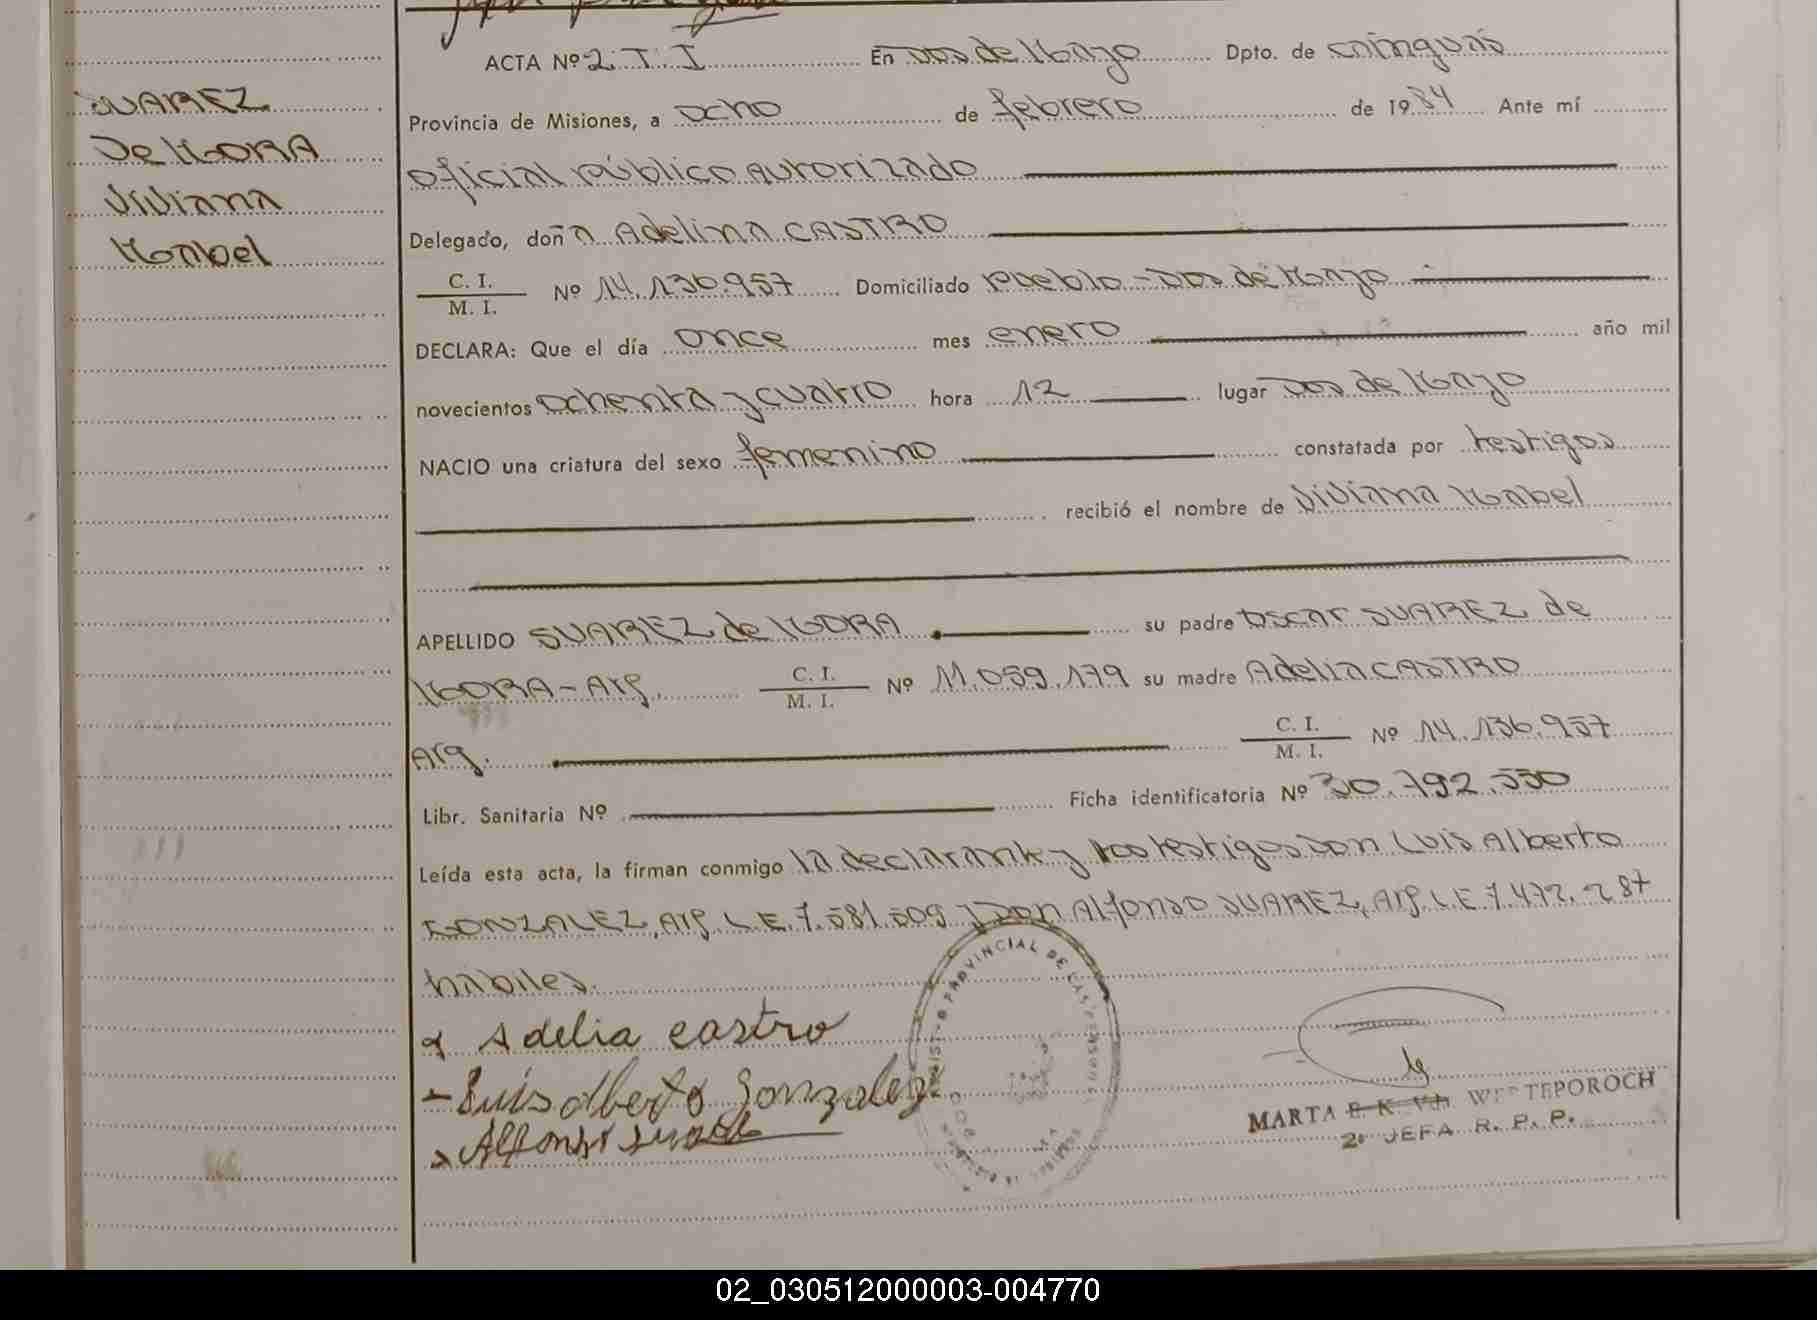 SUAREZ
De MORA
Viviana
Mabel
ACTA Nº 2. T. I En Dos de Mayo Dpto. de Cainguás
Provincia de Misiones, a ocho de febrero de 1984 Ante mí
oficial público autorizado
Delegado, doña Adelina CASTRO
C. I.
M. I. Nº 14.136.957 Domiciliado Pueblo - Dos de Mayo
DECLARA: Que el día once mes enero año mil
novecientos ochenta y cuatro hora 12 lugar Dos de Mayo
NACIO una criatura del sexo femenino constatada por testigos
recibió el nombre de Viviana Mabel
APELLIDO SUAREZ de MORA su padre Oscar SUAREZ de
MORA - Arg. C. I.
M. I. Nº 11.059.179 su madre Adelia CASTRO
Arg. C. I.
M. I. Nº 14.136.957
Libr. Sanitaria Nº Ficha identificatoria Nº 30.792.550
Leída esta acta, la firman conmigo la declarante y los testigos Don Luis Alberto
GONZALEZ, Arg. L.E. 7.581.509 y Don Alfonso SUAREZ, Arg. L.E. 7.472.287
hábiles.
Adelia Castro
Luis Alberto Gonzalez
Alfonso Suarez
PROVINCIAL DE LAS PERSONAS
MARTA E. K. Vda. WESTEPOROCH
2º JEFA R. P. P.
02_030512000003-004770